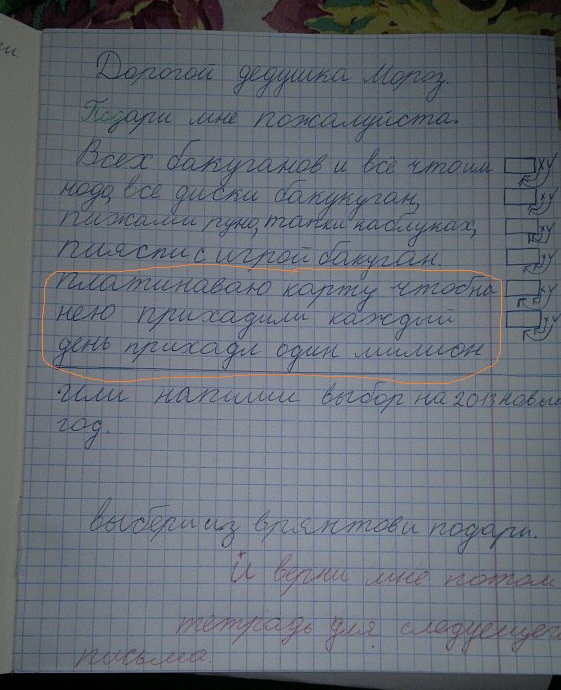 Дорогой дедушка Мороз.
Подари мне пожалуйста.
Всех бакуганов и всё что им
нодо, все диски бакукуган,
пижами руно, тапки наблуках,
пияспи с игрой бакуган.
платинаваю карту чтобна
нею прихадили каждый
день прихадл один милион
или напиши выбор на 2013 новый
год.
выбери из врянтов и подари.
И верни мне потом
тетрадь для следуещего
письма.